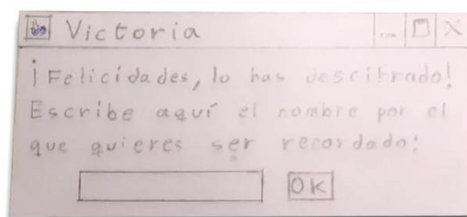 Victoria
¡Felicidades, lo has descifrado!
Escribe aquí el nombre por el
que quieres ser recordado:
OK